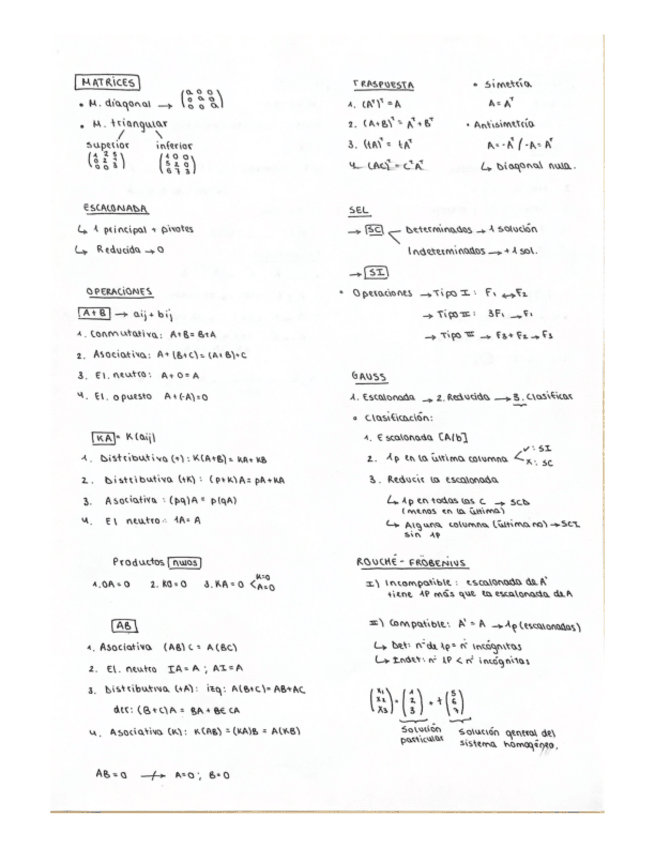 MATRICES
• M. diagonal → (a 0 0
0 a 0
0 0 a)
• M. triangular
superior inferior
(1 2 5
0 2 4
0 0 3) (1 0 0
5 2 0
6 7 3)
ESCALONADA
↳ 1 principal + pivotes
↳ Reducida → 0
OPERACIONES
A+B → aij + bij
1. Conmutativa: A+B = B+A
2. Asociativa: A+(B+C)=(A+B)+C
3. El. neutro: A+0=A
4. El. opuesto A+(-A)=0
KA = K(aij)
1. Distributiva (+): K(A+B) = KA+KB
2. Distributiva (+K): (p+K)A = pA+KA
3. Asociativa: (pq)A = p(qA)
4. El neutro: 1A = A
Productos nulos
1. 0A=0 2. K0=0 3. KA=0 < K=0
A=0
AB
1. Asociativa (AB)C = A(BC)
2. El. neutro IA=A ; AI=A
3. Distributiva (+A): izq: A(B+C)=AB+AC
der: (B+C)A = BA+ CA
4. Asociativa (K): K(AB) = (KA)B = A(KB)
AB=0 ↛ A=0; B=0
TRASPUESTA
1. (Aᵀ)ᵀ = A
2. (A+B)ᵀ = Aᵀ+Bᵀ
3. (tA)ᵀ = tAᵀ
4. (AC)ᵀ = CᵀAᵀ
• Simetría
A = Aᵀ
• Antisimetría
A = -Aᵀ / -A = Aᵀ
↳ Diagonal nula.
SEL
→ SC < Determinados → 1 solución
Indeterminados → +1 sol.
→ SI
• Operaciones → Tipo I: F₁ ↔ F₂
→ Tipo II: 3F₁ → F₁
→ Tipo III → F₃+F₂ → F₃
GAUSS
1. Escalonada → 2. Reducida → 3. Clasificar
• Clasificación:
1. Escalonada [A/b]
2. 1p en la última columna < ✓: SI
x: SC
3. Reducir la escalonada
↳ 1p en todas las C → SCD
(menos en la última)
↳ Alguna columna (última no) → SCI
sin 1P
ROUCHÉ - FRÖBENIUS
I) Incompatible: escalonada de A'
tiene 1P más que la escalonada de A
II) Compatible: A' = A → 1p (escalonadas)
↳ Det: nº de 1p = nº incógnitas
↳ Indet: nº 1P < nº incógnitas
(x₁
x₂
x₃) = (1
2
3) + t (5
6
7)
Solución
particular
Solución general del
sistema homogéneo.